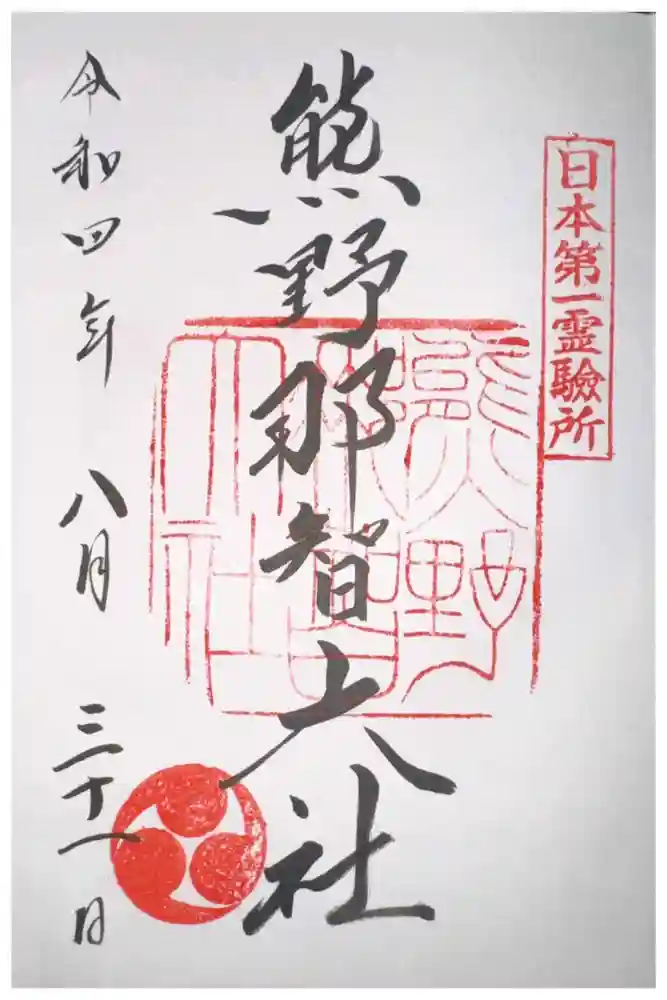 日本第一霊驗所
熊野那智大社
熊野那智大社
令和四年 八月 三十一日